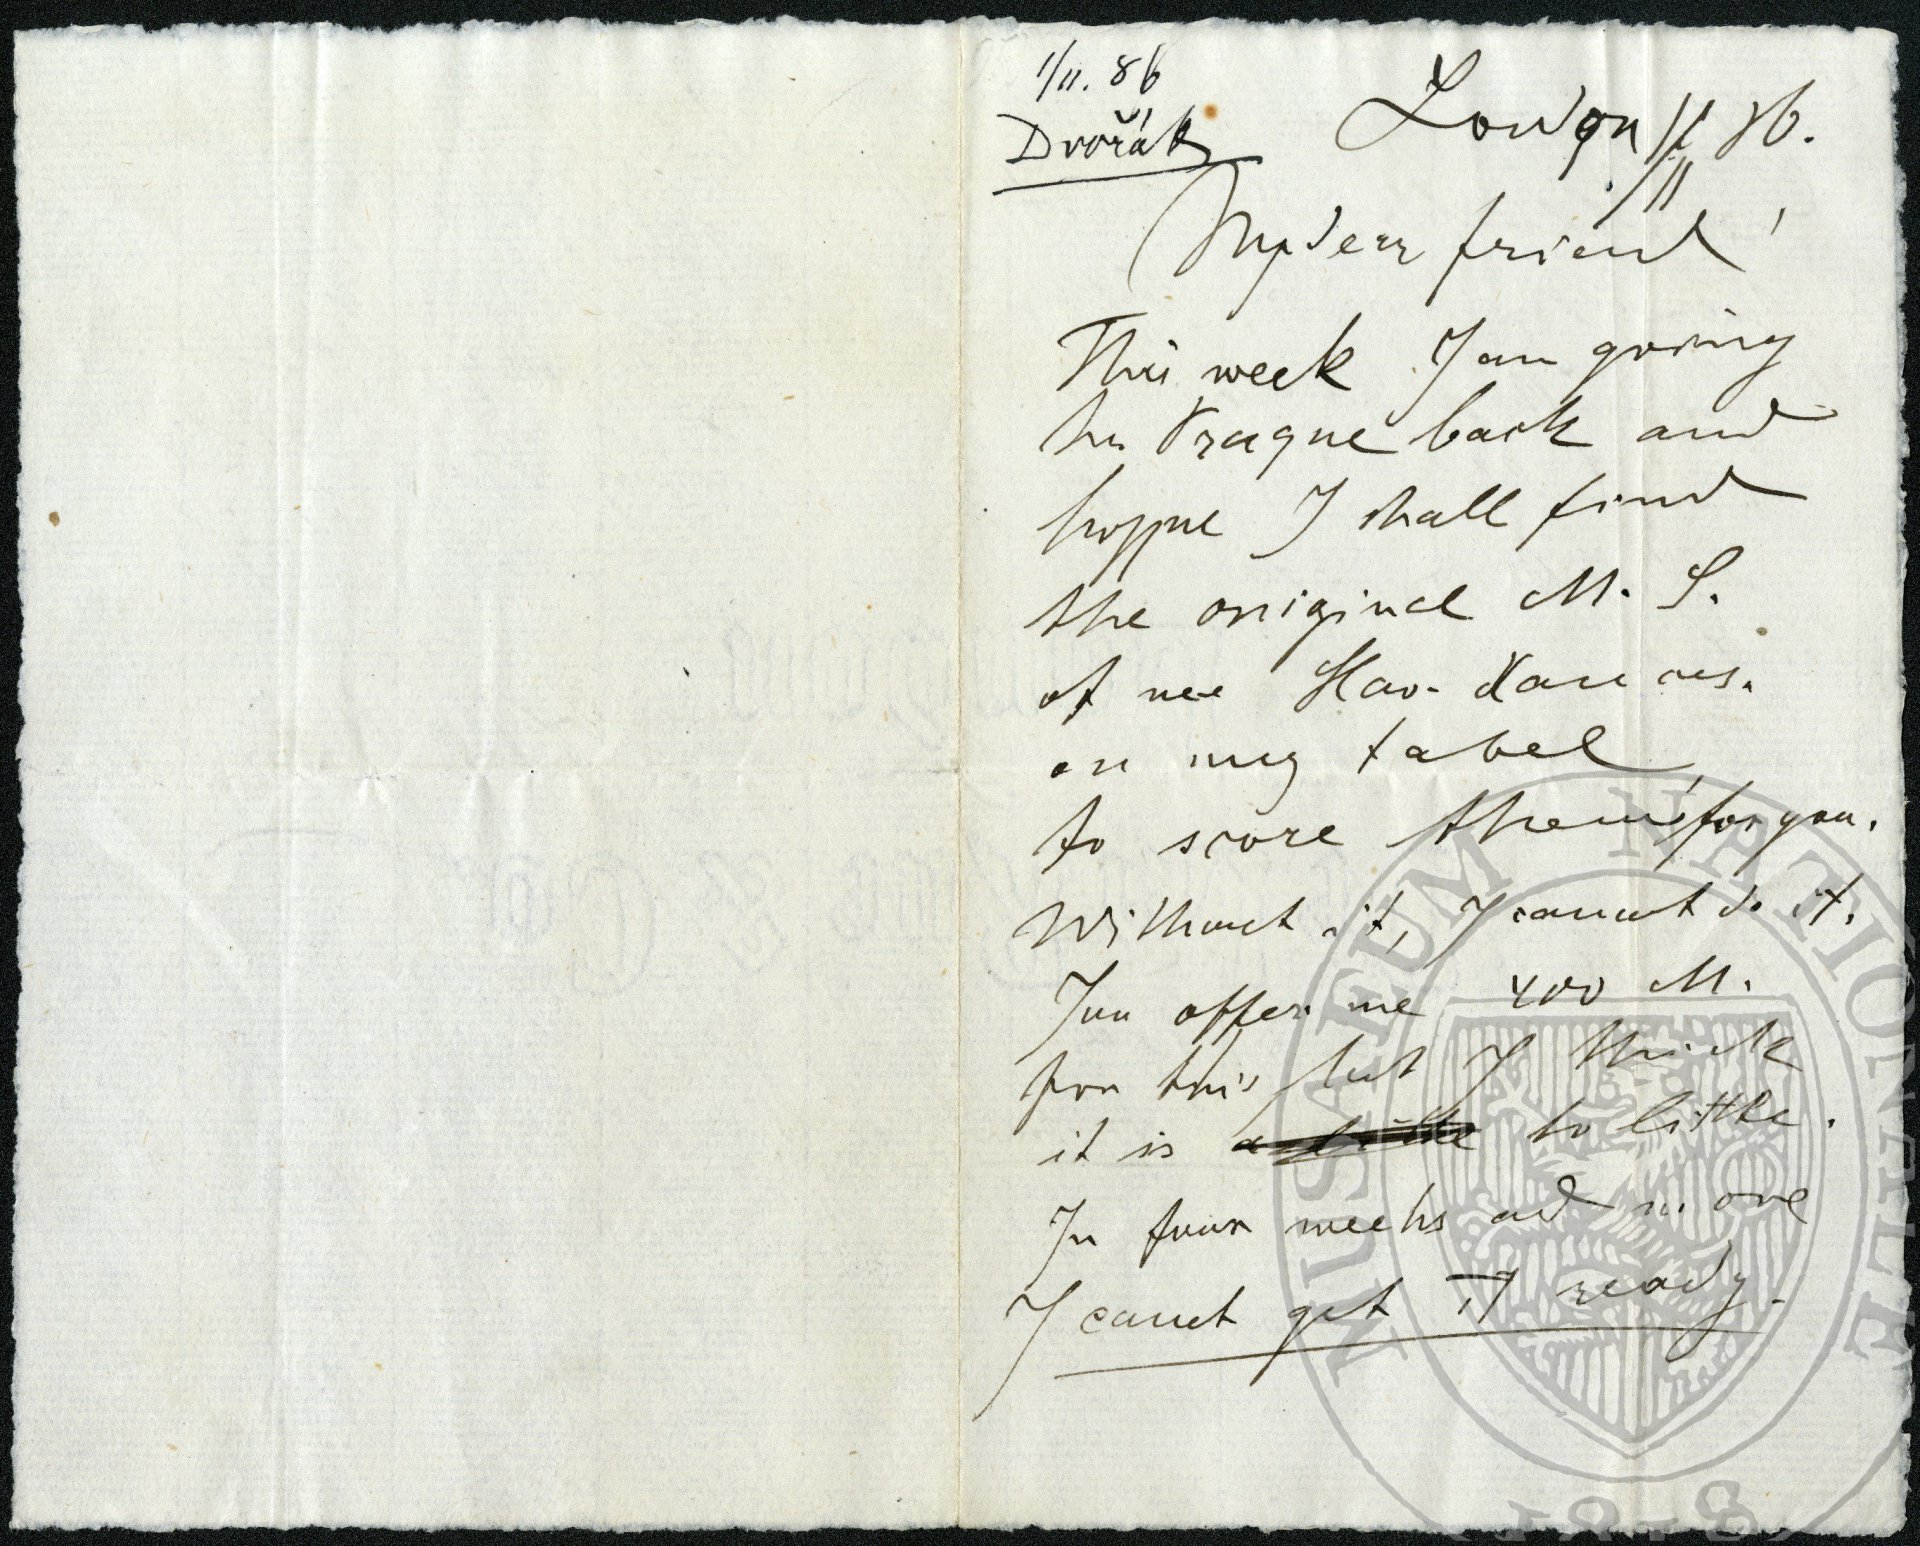 1/11. 86
Dvořák
London 1/11 86.
My dear friend!
This week I am going
to Prague back and
hoppe I shall find
the original M. S.
of Slav. Dances.
on my tabel
to score them for you.
Without it, I cannot do it.
You offer me 400 M.
for this but I think
it is to little.
In four weeks ad more
I cannt get it ready.
MUSAEUM NATIONALE
1818